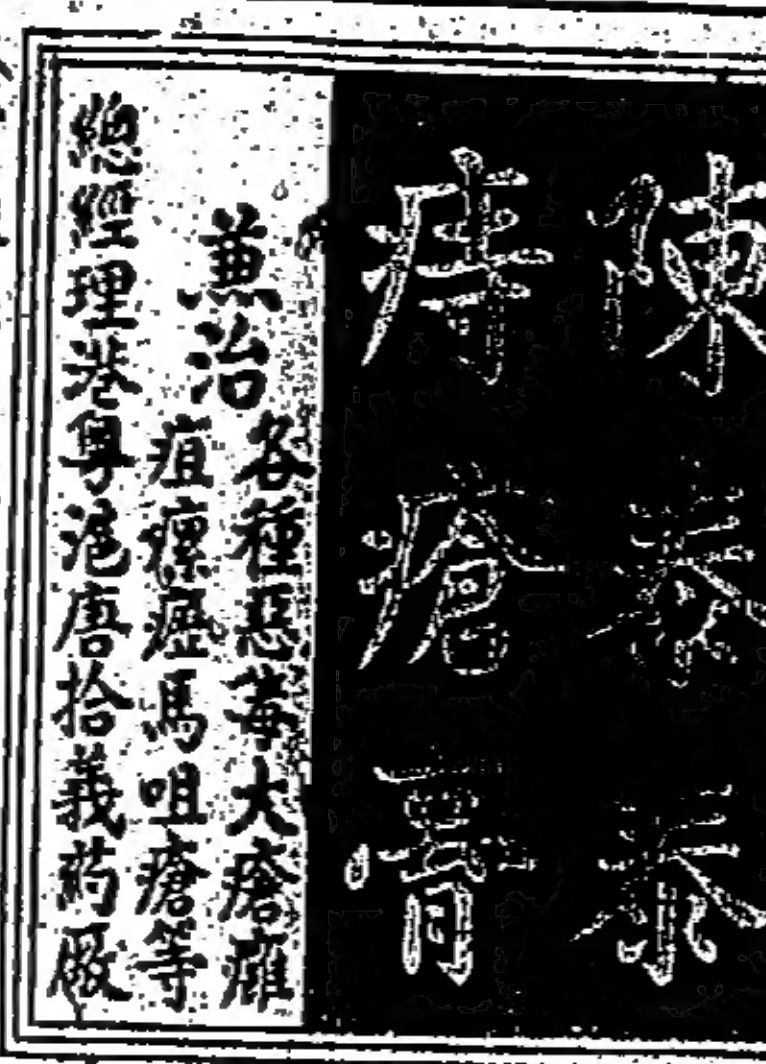 陳泰泰
痔瘡膏
兼治
各種惡毒大瘡癰
疽瘰癧馬咀瘡等
總經理港粤滬唐拾義葯厰